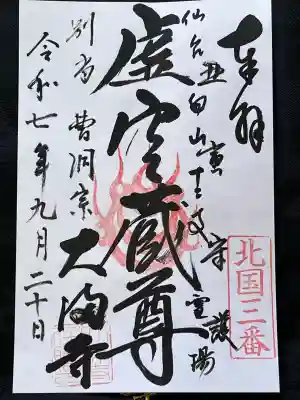 奉拝
北国三番
仙台丑向山寅十二支守護霊場
虚空蔵尊
別当 曹洞宗 大満寺
令和七年九月二十日